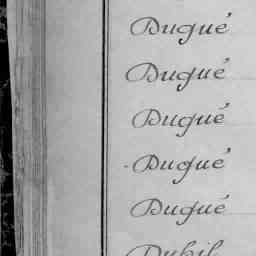 Duqué
Duqué
Duqué
Duqué
Duqué
Duhil